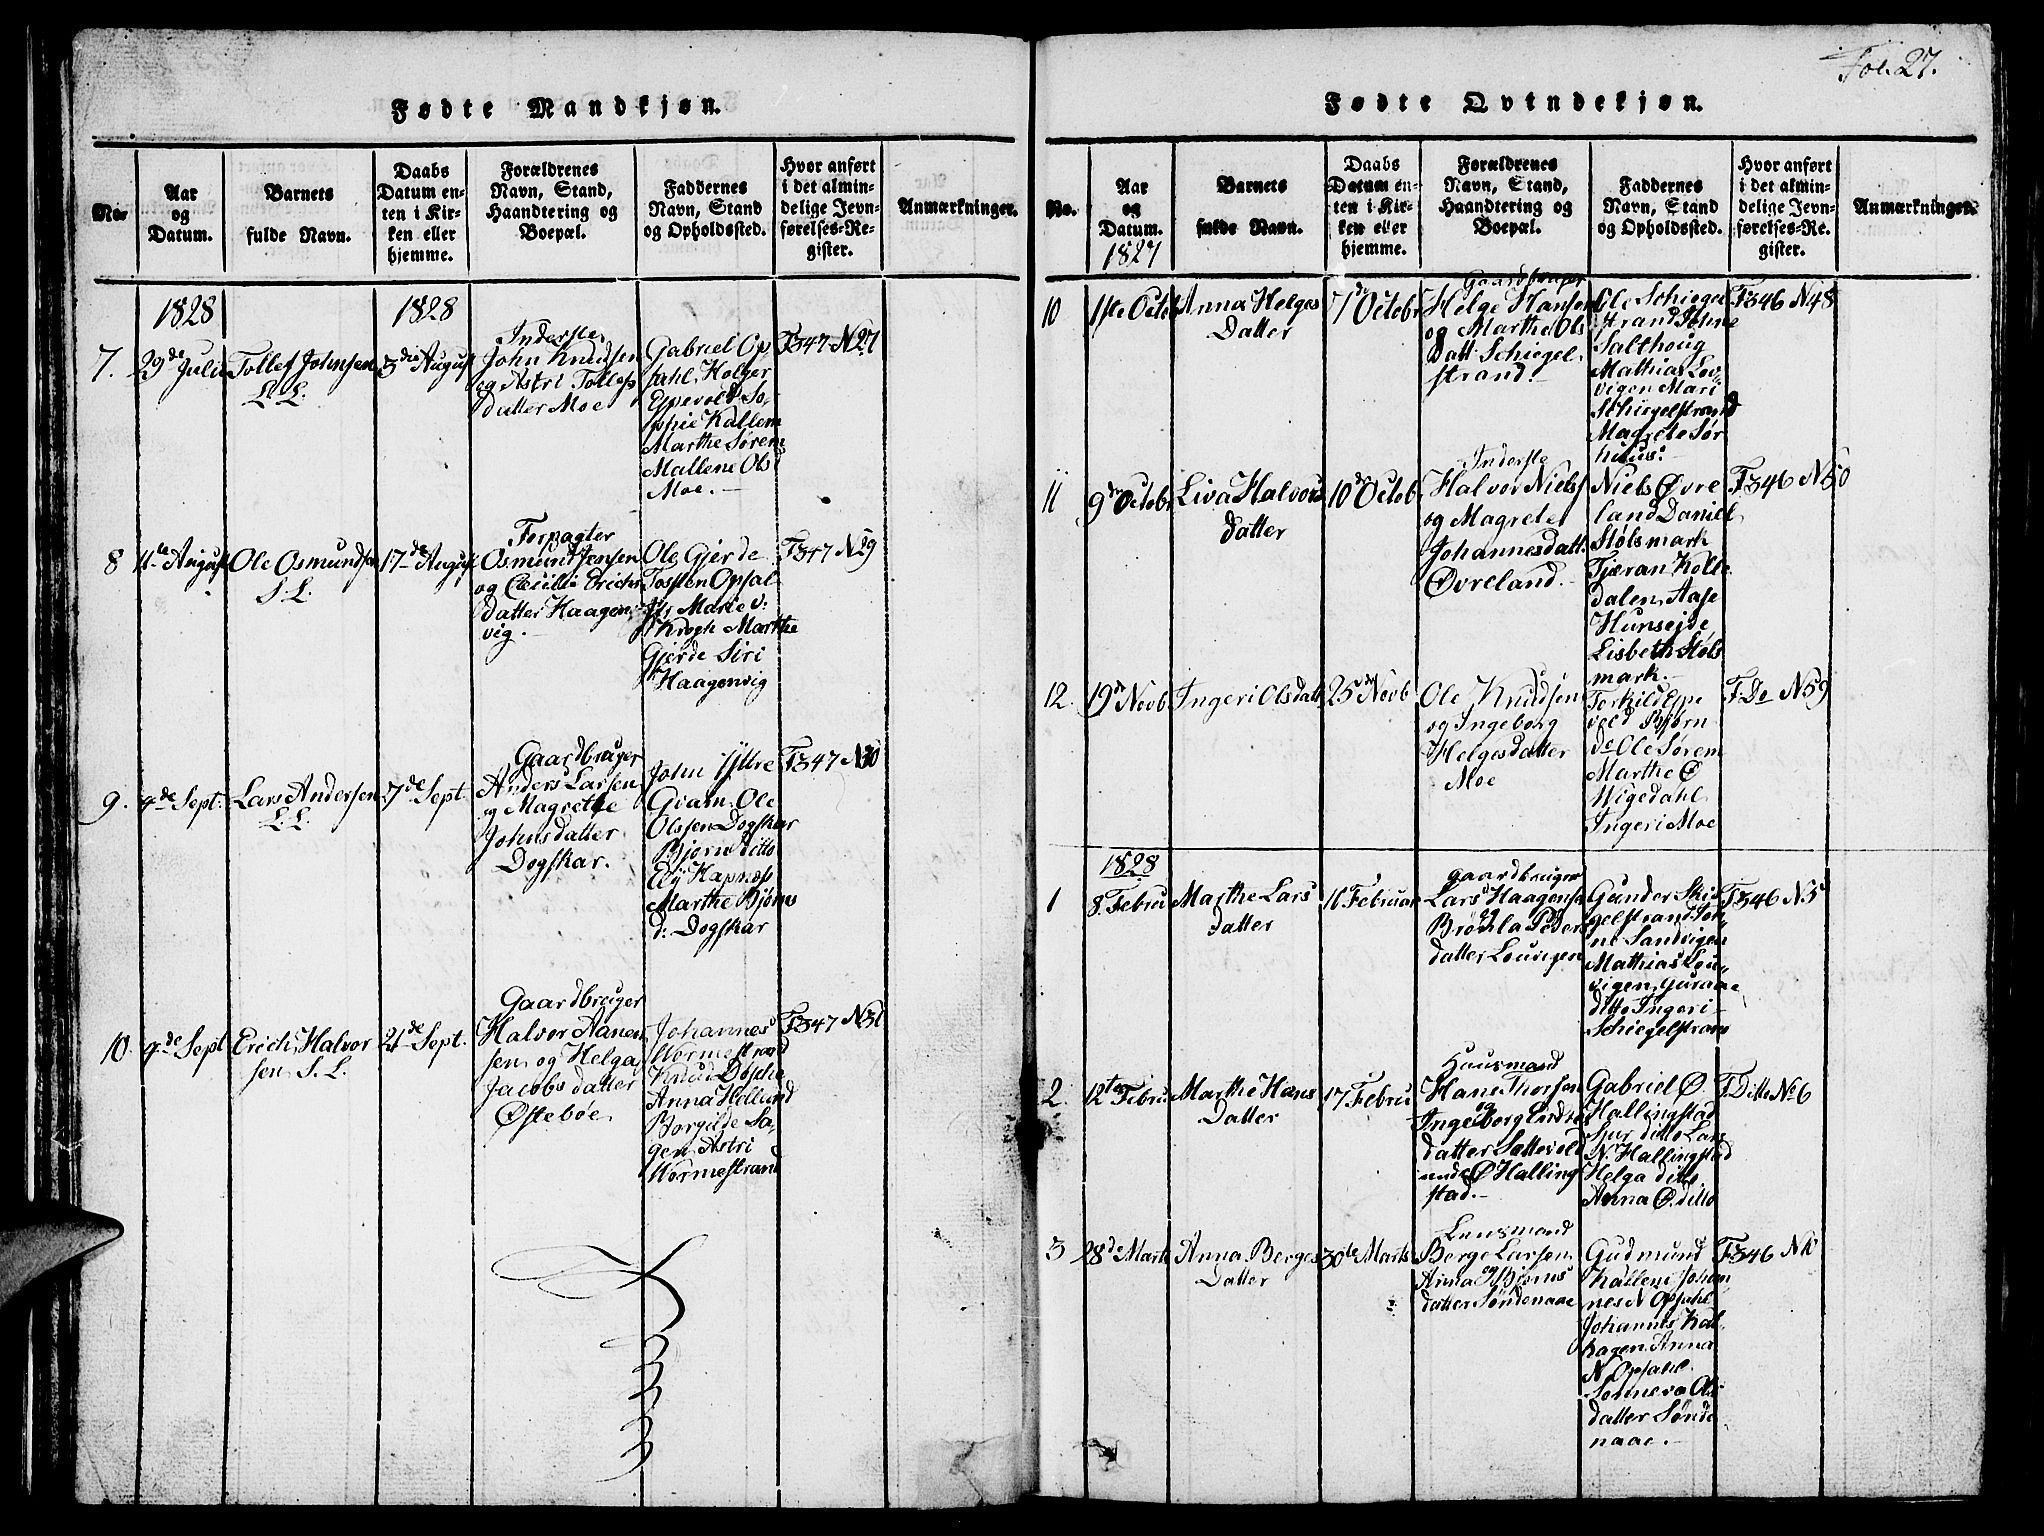 Fødte Mandkjøn.
No.
Aar
og
Datum.
Barnets
fulde Navn.
Daabs
Datum en-
ten i Kir-
ken eller
hjemme.
Forældrenes
Navn, Stand,
Haandtering og
Boepæl.
Faddernes
Navn, Stand
og Opholdssted.
Hvor anført
i det almin-
delige Jevn-
førelses-Re-
gister.
Anmærkninger.
1828
1828
7.
29de Juli
Tollef Johnsen
L L.
3die August
Inderste
John Knudsen
og Astri Tollefs
datter Moe
Gabriel Op
sahl, Holger
Espevold So-
phie Kallem
Marthe Sørem
Mallene Olsd
Moe.
F347 N27
8
11te August
Ole Osmundsen
S L.
17de August
Forpagter
Osmund Jensen
og Cecilie Erichs
datter Haagen-
vig.
Ole Gjerde
Tosten Opsal
Marie v:
Krogh Marthe
Gjerde Siri
Haagenvig
F347 N29
9.
4de Sept.
Lars Andersen
L L.
7de Sept.
Gaardbruger
Anders Larsen
og Magrethe
Johnsdatter
Dogskar.
John Yttre
Gram, Ole
Olssen Dogskar
Bjørn ditto
Ely Hapness
Marthe Bjørns
d: Dogskar
F347 N30
10.
9de Sept
Erich Halvor
sen S. L.
21de Sept.
Gaardbruger
Halvor Aanen
sen og Helga
Jacobsdatter
Østebøe
Johannes
Wormestrand
Knud Døske
Anna Hollund
Borgilde Sa-
gen Astri
Wormestrand
F347 N31
Fol. 27.
Fødte Qvindekjøn.
No.
Aar
og
Datum.
1827
Barnets
fulde Navn.
Daabs
Datum en-
ten i Kir-
ken eller
hjemme.
Forældrenes
Navn, Stand,
Haandtering og
Boepæl.
Faddernes
Navn, Stand
og Opholdssted.
Hvor anført
i det almin-
delige Jevn-
førelses-Re-
gister.
Anmærkninger.
10
1ste Octob
Anna Helges
Datter
7de Octobr
Gaardbruger
Helge Hansen
og Marthe Ols
datt Schiegel
strand.
Ole Schiegel
strand Johne
Salthoug
Mathias Lov-
vigen Mari
Schiegelstrand
Magrete Sør
huus.
F346 N48
11
9de Octob
Liva Halvors
datter
10de Octob
Inderste
Halvor Niels
og Magrete
Johannesdatt.
Øvreland.
Niels Øvre
land Daniel
Stølsmark
Tjæran Kolle
dalen, Aase
Hunseide
Lisbeth Støls
mark.
F346 N50
12.
19de Novb
Ingeri Olsdatt
25de Novb
Ole Knudsen
og Ingeborg
Helgesdatter
Moe
Torkild Espe
vold Bjørn
do Ole Sørem
Marthe Ø
Wigedahl
Ingeri Moe
F. Do N59
1828
1
8. Febru
Marthe Lars
datter
16 Februar
gaardbruger
Lars Haagensen
og
Brøhla Peders
datter Louvigen
Gunder Ski
gelstrand Joh
ne Sandvigen
Mathias Lou-
vigen, Guraae
ditto Ingeri
Schiegelstrand
F346 N5
2.
12te Febru
Marthe Hans
Datter
17 Febru
Huusmand
Hans Thorsen
og
Ingeborg Endre
datter Sættevold
unde Ø Halling
stad.
Gabriel Ø.
Hallingstad
Siur ditto Lars
N. Hallingstad
Helga ditto
Anna Ø. ditto
F Ditto No 6
3
28de Marts
Anna Berges
Datter
30te Marts
Lensmand
Berge Larsen
og
Anna Bjørns
datter Søndenaae
Gudmund
Kallem Johan
nes N Opsahl
Johannes Kal
hagen Anna
N Opsahl
Sonnera Ols
datter Sønde
naae.
F346 N10